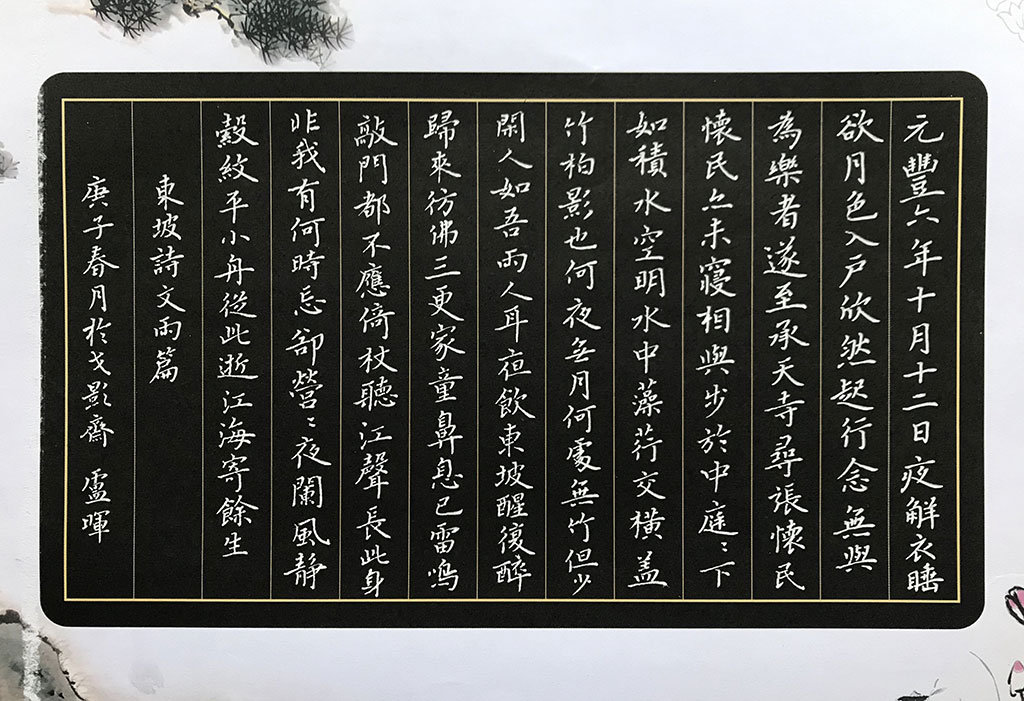 元豐六年十月十二日夜解衣睡
欲月色入戶欣然起行念無與
為樂者遂至承天寺尋張懷民
懷民亦未寢相與步於中庭〻下
如積水空明水中藻荇交橫盖
竹柏影也何夜無月何處無竹但少
閑人如吾兩人耳夜飲東坡醒復醉
歸來彷彿三更家童鼻息已雷鳴
敲門都不應倚杖聽江聲長此身
非我有何時忘卻營〻夜闌風静
縠紋平小舟從此逝江海寄餘生
東坡詩文兩篇
庚子春月於戈影齋 盧暉